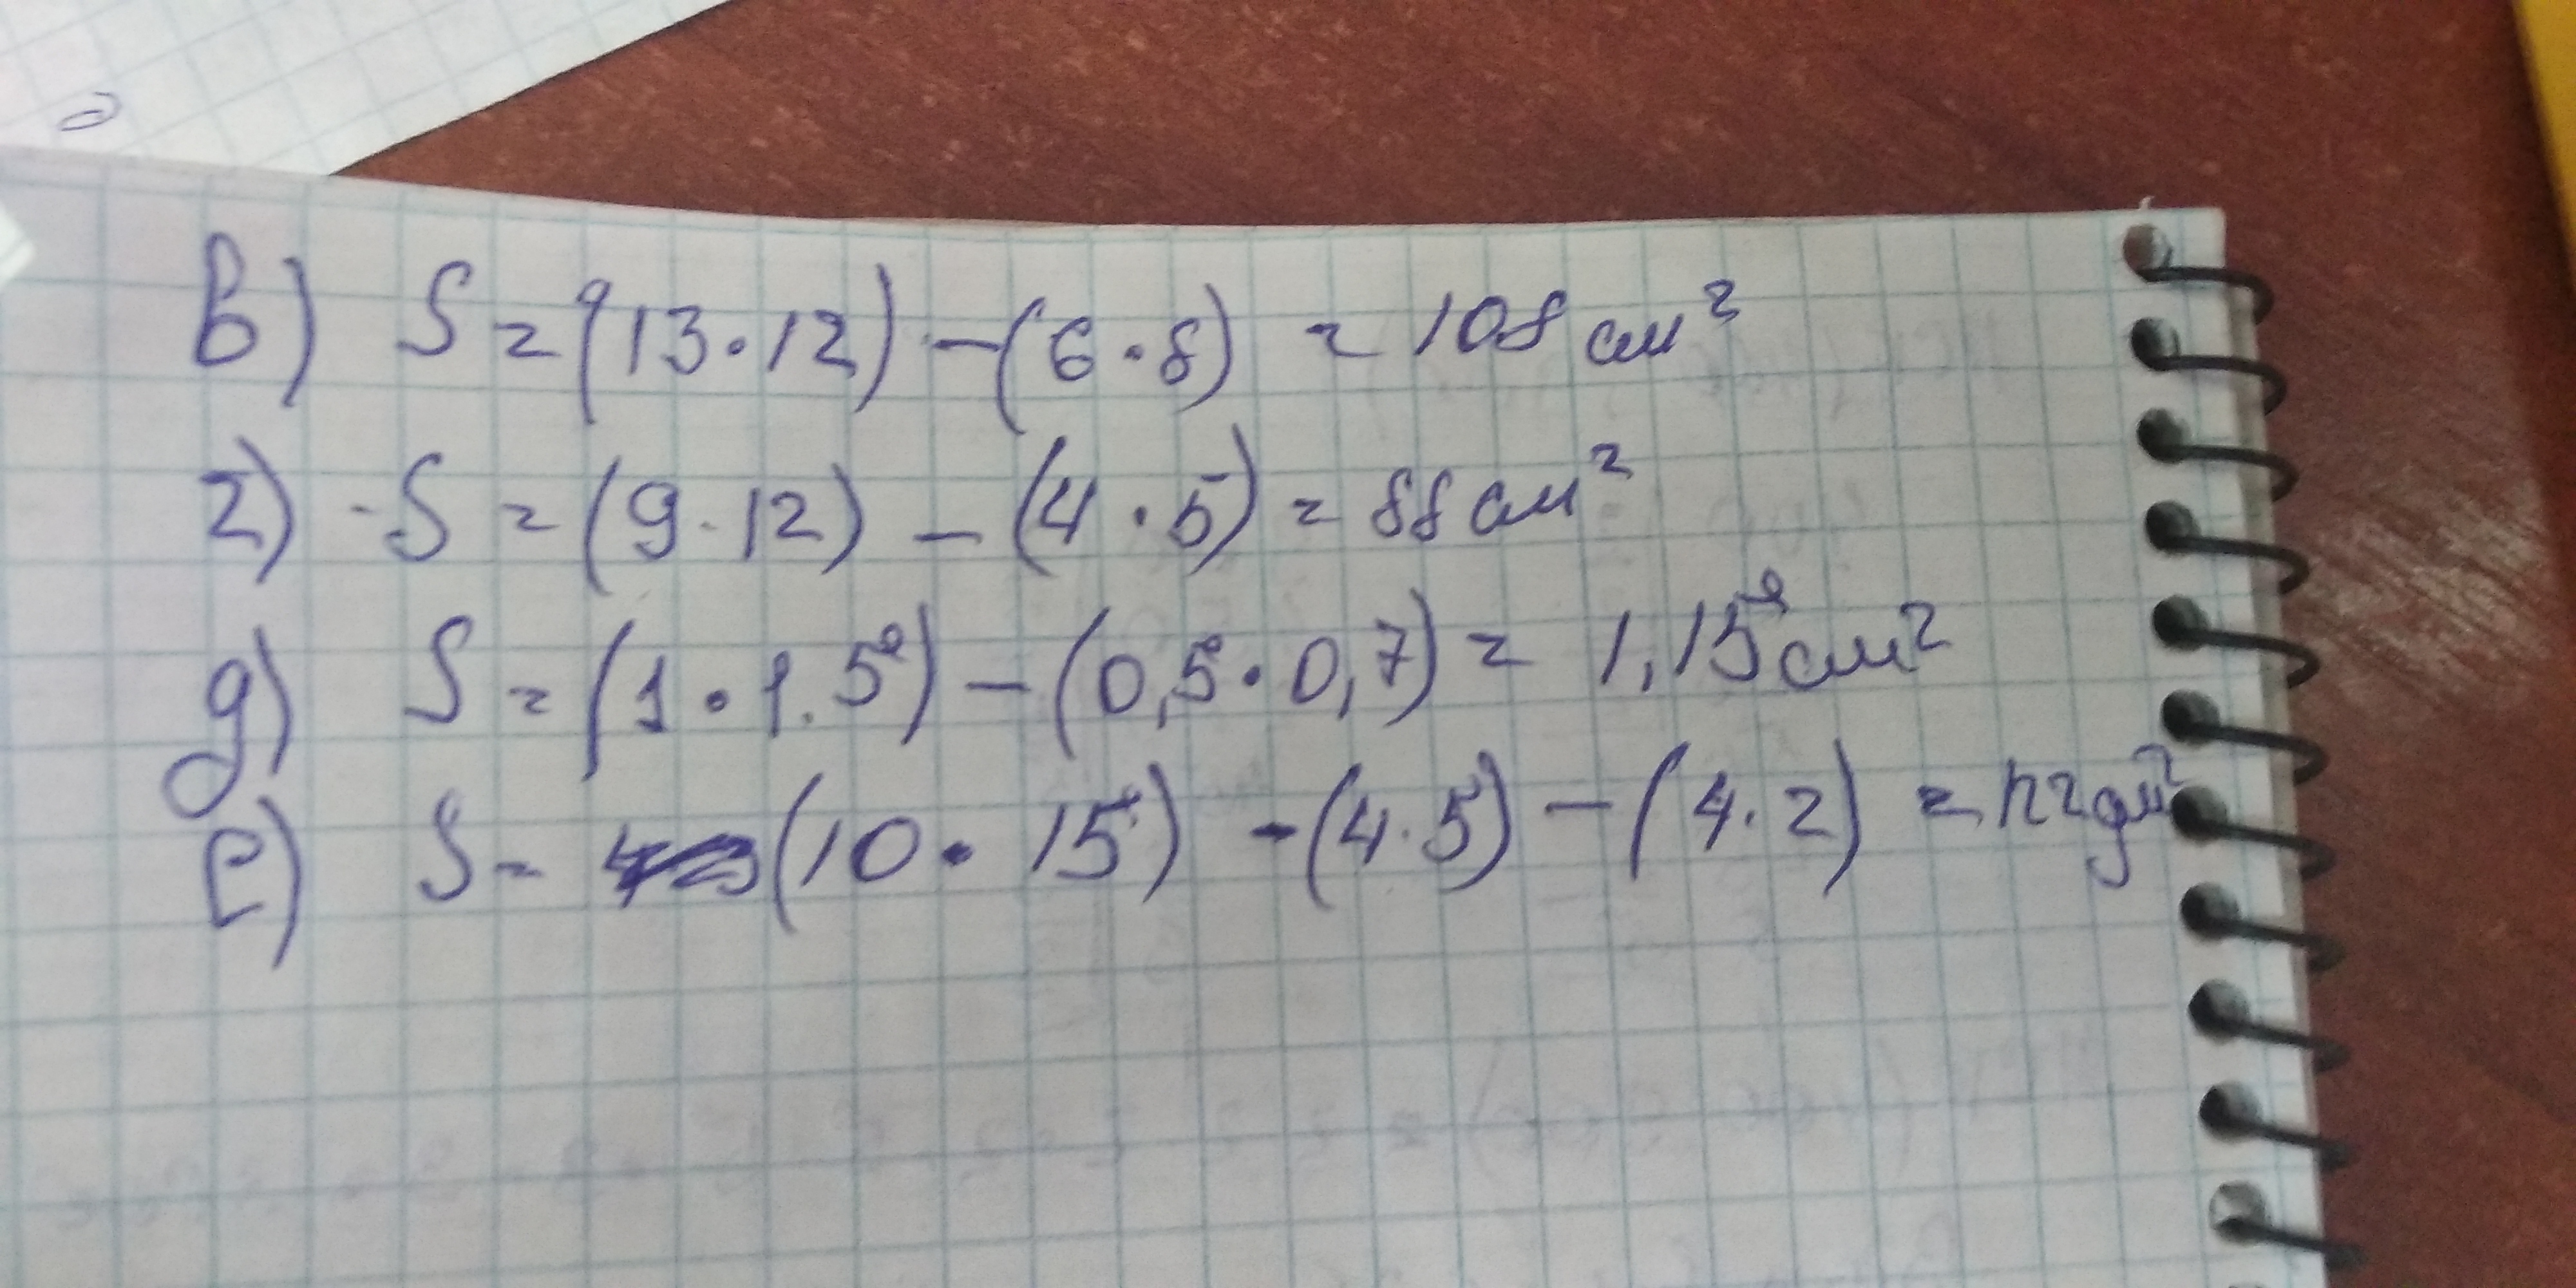 в) S = (13·12) - (6·8) = 108 см²
г) S = (9·12) - (4·5) = 88 см²
д) S = (1·1.5) - (0,5·0,7) = 1,15 см²
е) S = (10·15) - (4·5) - (4·2) = 122 дм²